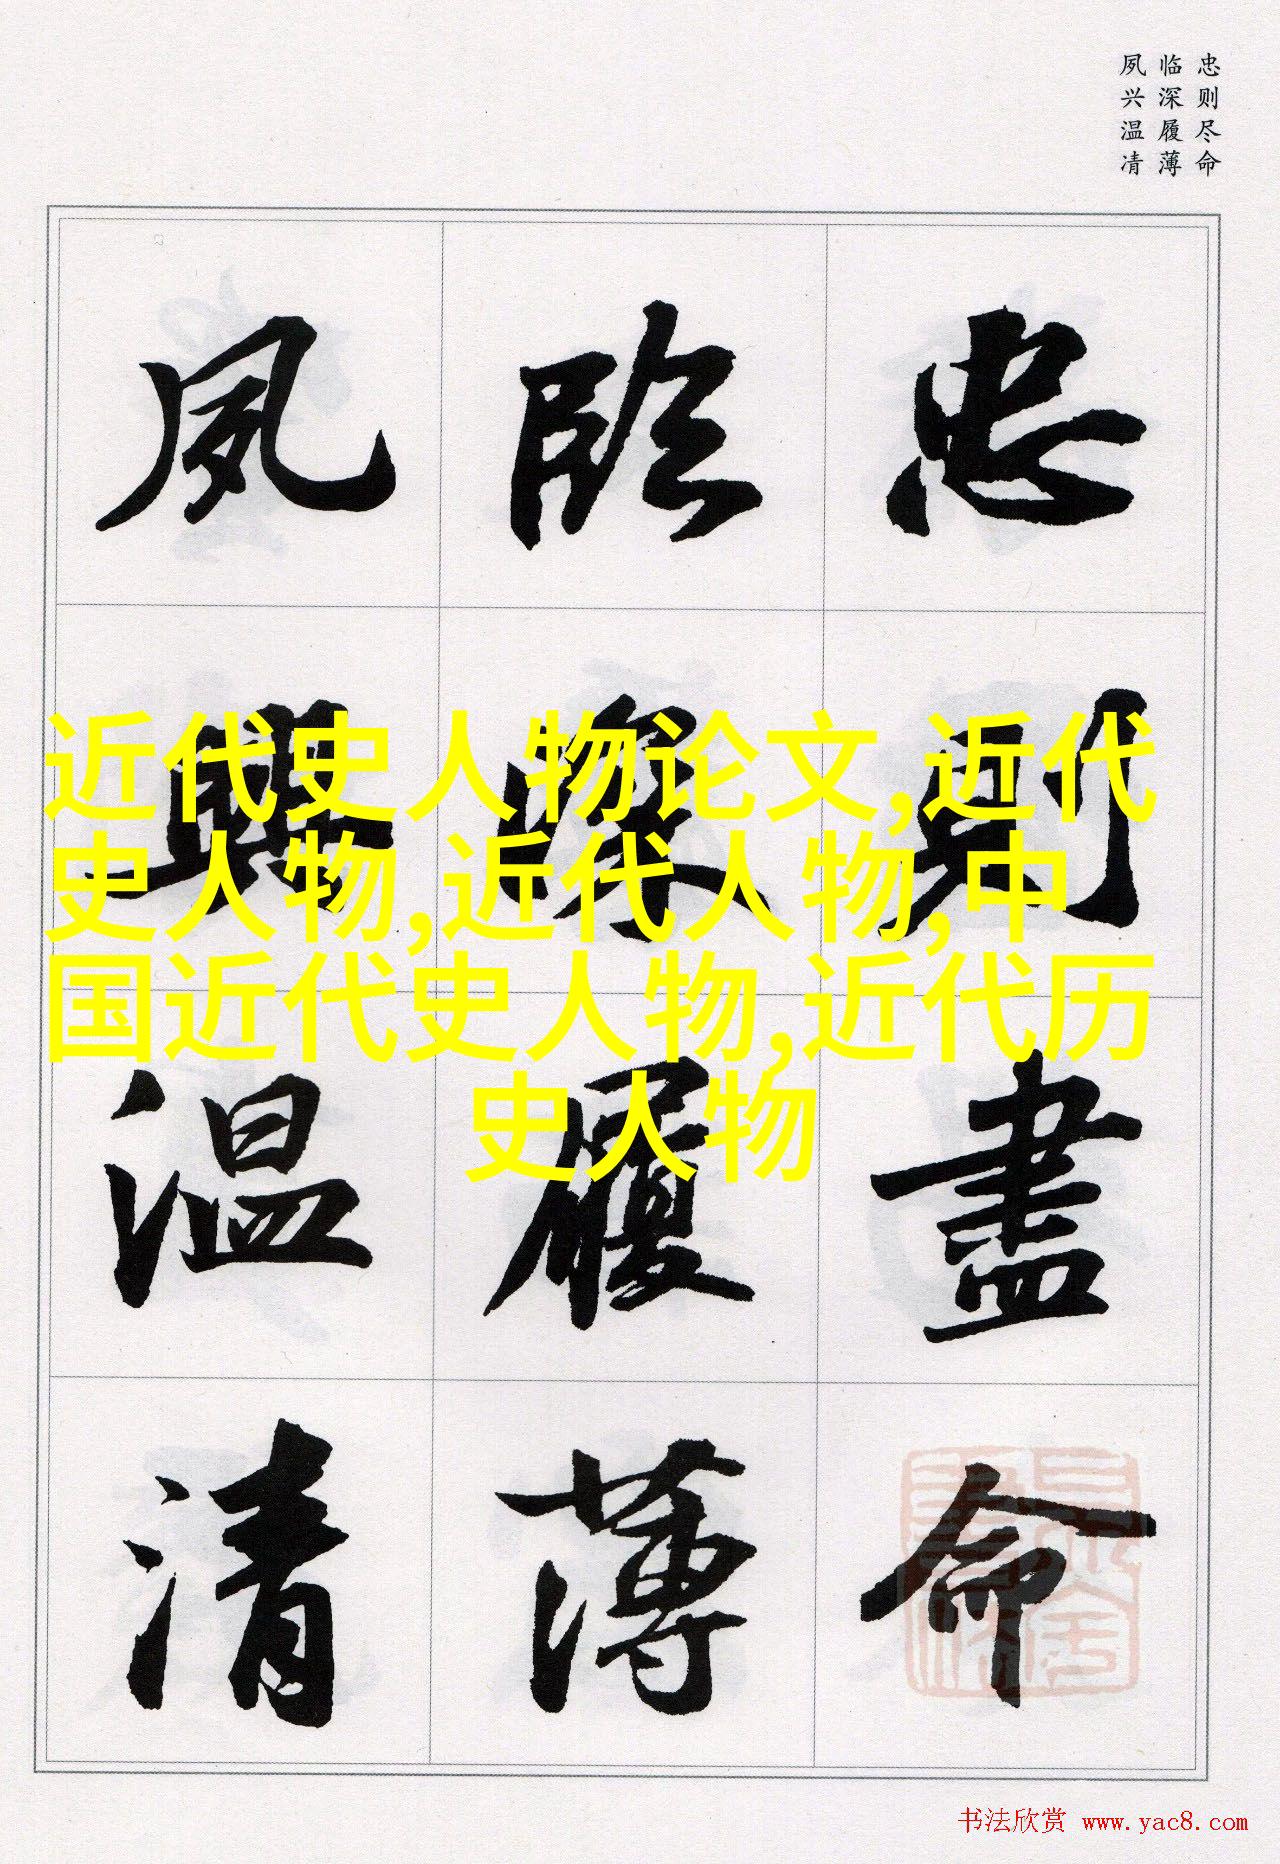 忠则尽命
临深履薄
夙兴温凊
忠則盡命
臨深履薄
夙興温清
近代史人物论文,近代
史人物,近代人物,中
国近代史人物,近代历
史人物
书法欣赏 www.yac8.com